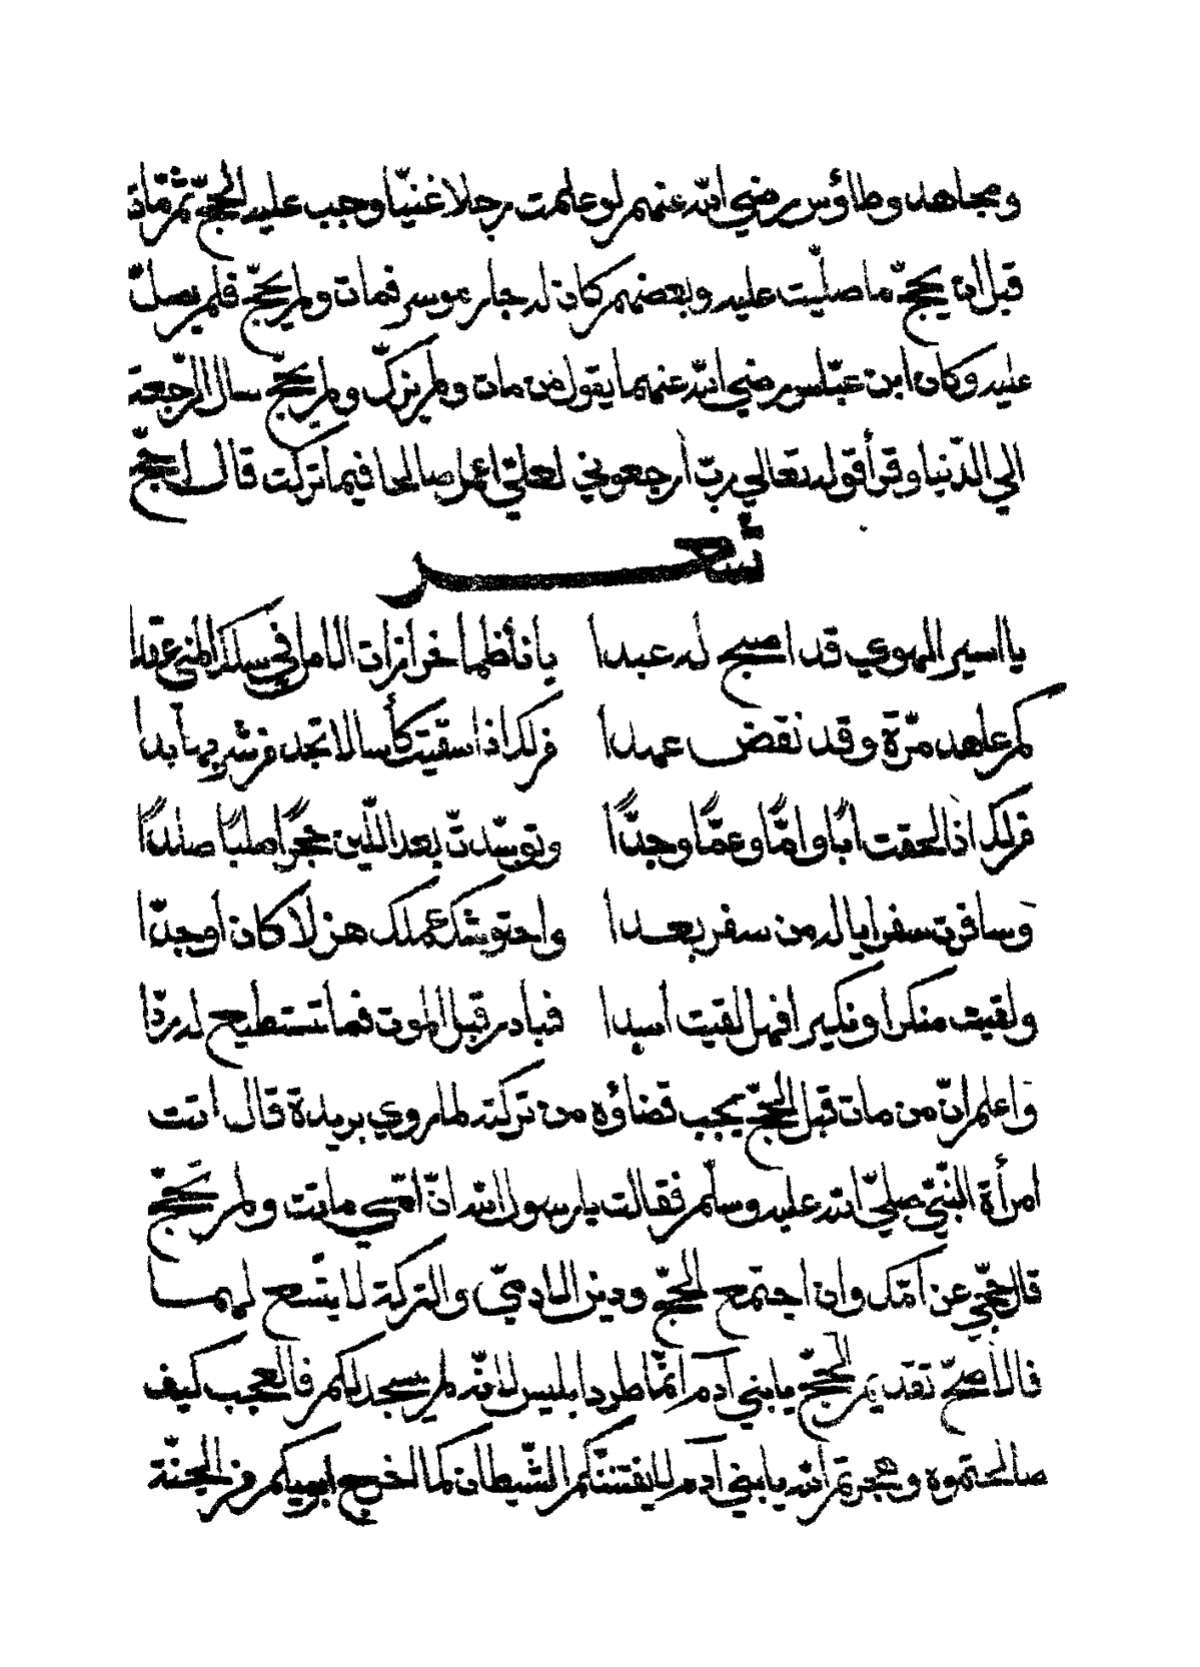 ومجاهد وطاؤس رضي الله عنهم لو علمت رجلا غنيّا وجب عليه الحجّ ثمّ مات
قبل ان يحجّ ما صلّيت عليه وبعضهم كان له جار موسر فمات ولم يحجّ فلم يصلّ
عليه وكان ابن عبّاس رضي الله عنهما يقول من مات ولم يزكّ ولم يحجّ سال الرّجعة
الي الدّنيا وقرأ قوله تعالي ربّ ارجعوني لعلّي اعمل صالحا فيما تركت قال احجّ
شعر
يا اسير الهوي قد اصبح له عبدا يا ناظما خرازات الامل في سلك المني عقدا
كم عاهد مرّة وقد نقض عهدا من لك اذا سقيت كأسا لا تجد من شربها بدا
من لك اذا الحقت ابًا وامًّا وعمًّا وجدًّا وتوسّدت بعد اللّين حجرًا صلبًا صلدًا
وسافرت سفرا يا له من سفر بعدا واحتوشك عملك هزلا كان اوجدّا
ولقيت منكرا ونكيرا فهل لقيت أسدا فبادر قبل الموت فما تستطيع له ردّا
واعلم انّ من مات قبل الحجّ يجب قضاؤه من تركته لما روي بريدة قال اتت
امرأة النّبيّ صلّي الله عليه وسلّم فقالت يا رسول الله انّ امّي ماتت ولم تحجّ
قال حجّي عن امّك وان اجتمع الحجّ ودين الادميّ والتركة لا يتّسع لهما
فالاصحّ تقديم الحجّ يا بني آدم انّما طرد ابليس لانّه لم يسجد لكم فالعجب كيف
صالحتموه وهجرتم الله يا بني آدم لا يفتننّكم الشّيطان كما اخرج ابويكم من الجنّة